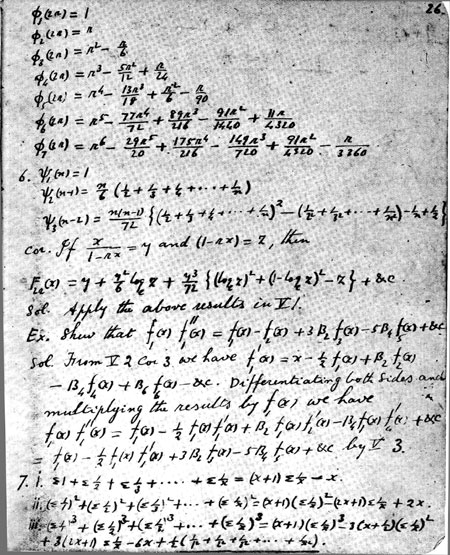 26.
φ₁(2n) = 1
φ₂(2n) = n
φ₃(2n) = n² - n/6
φ₄(2n) = n³ - 5n²/12 + n/24
φ₅(2n) = n⁴ - 13n³/18 + n²/6 - n/90
φ₆(2n) = n⁵ - 77n⁴/72 + 89n³/216 - 91n²/1440 + 11n/4320
φ₇(2n) = n⁶ - 29n⁵/20 + 175n⁴/216 - 149n³/720 + 91n²/4320 - n/3360
6. ψ₁(n) = 1
ψ₂(n-1) = n/6 (1/2 + 1/3 + 1/4 + ... + 1/n)
ψ₃(n-2) = n(n-1)/72 {(1/2 + 1/3 + 1/4 + ... + 1/n)² - (1/2² + 1/3² + ... + 1/n²) - 1/n + 1/2}
Cor. If x/(1-nx) = y and (1-nx) = z, then
F₂ₙ(x) = y + y²/6 log z + y³/72 {(log z)² + (1-log z)² - z} + &c
Sol. Apply the above results in V 1.
Ex. Shew that f₁(x) f₁″(x) = f₁(x) - f₂(x) + 3B₂ f₃(x) - 5B₄ f₅(x) + &c
Sol. From V 2 Cor 3 we have f₁′(x) = x - 1/2 f₁(x) + B₂ f₂(x)
- B₄ f₄(x) + B₆ f₆(x) - &c. Differentiating both sides and
multiplying the results by f₁(x) we have
f₁(x) f₁″(x) = f₁(x) - 1/2 f₁(x) f₁′(x) + B₂ f₁(x) f₂′(x) - B₄ f₁(x) f₄′(x) + &c
= f₁(x) - 1/2 f₁(x) f₁′(x) + 3B₂ f₃(x) - 5B₄ f₅(x) + &c by V 3.
7. i. Σ1 + Σ1/2 + Σ1/3 + ... + Σ1/x = (x+1) Σ1/x - x.
ii. (Σ1/1)² + (Σ1/2)² + (Σ1/3)² + ... + (Σ1/x)² = (x+1)(Σ1/x)² - (2x+1) Σ1/x + 2x.
iii. (Σ1/1)³ + (Σ1/2)³ + (Σ1/3)³ + ... + (Σ1/x)³ = (x+1)(Σ1/x)³ - 3(x+1/2)(Σ1/x)²
+ 3(2x+1) Σ1/x - 6x + 1/2 (1/1² + 1/2² + 1/3² + ... + 1/x²).